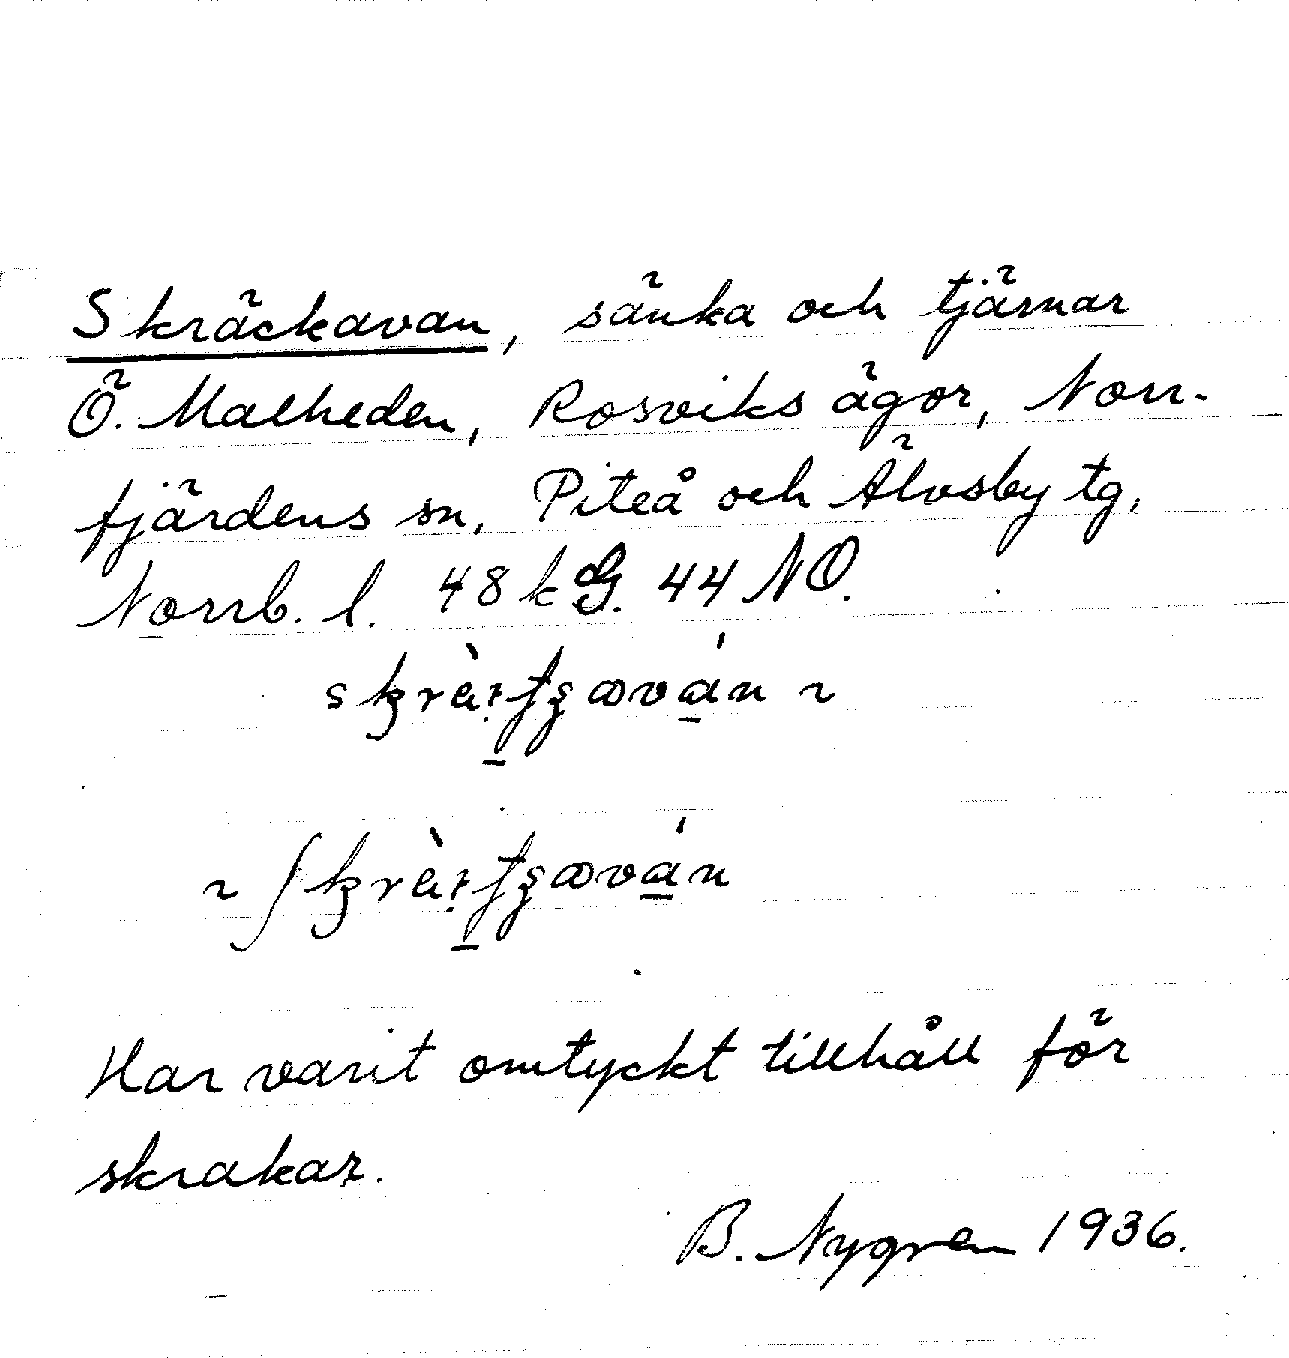 Skräckavan, sänka och tjärnar
Ö. Malheden, Rosviks ägor, Norr-
fjärdens sn, Piteå och Älvsby tg,
Norrb. l. 48 k G. 44 NO.
Har varit omtyckt tillhåll för
skrakar.
B. Nygren 1936.